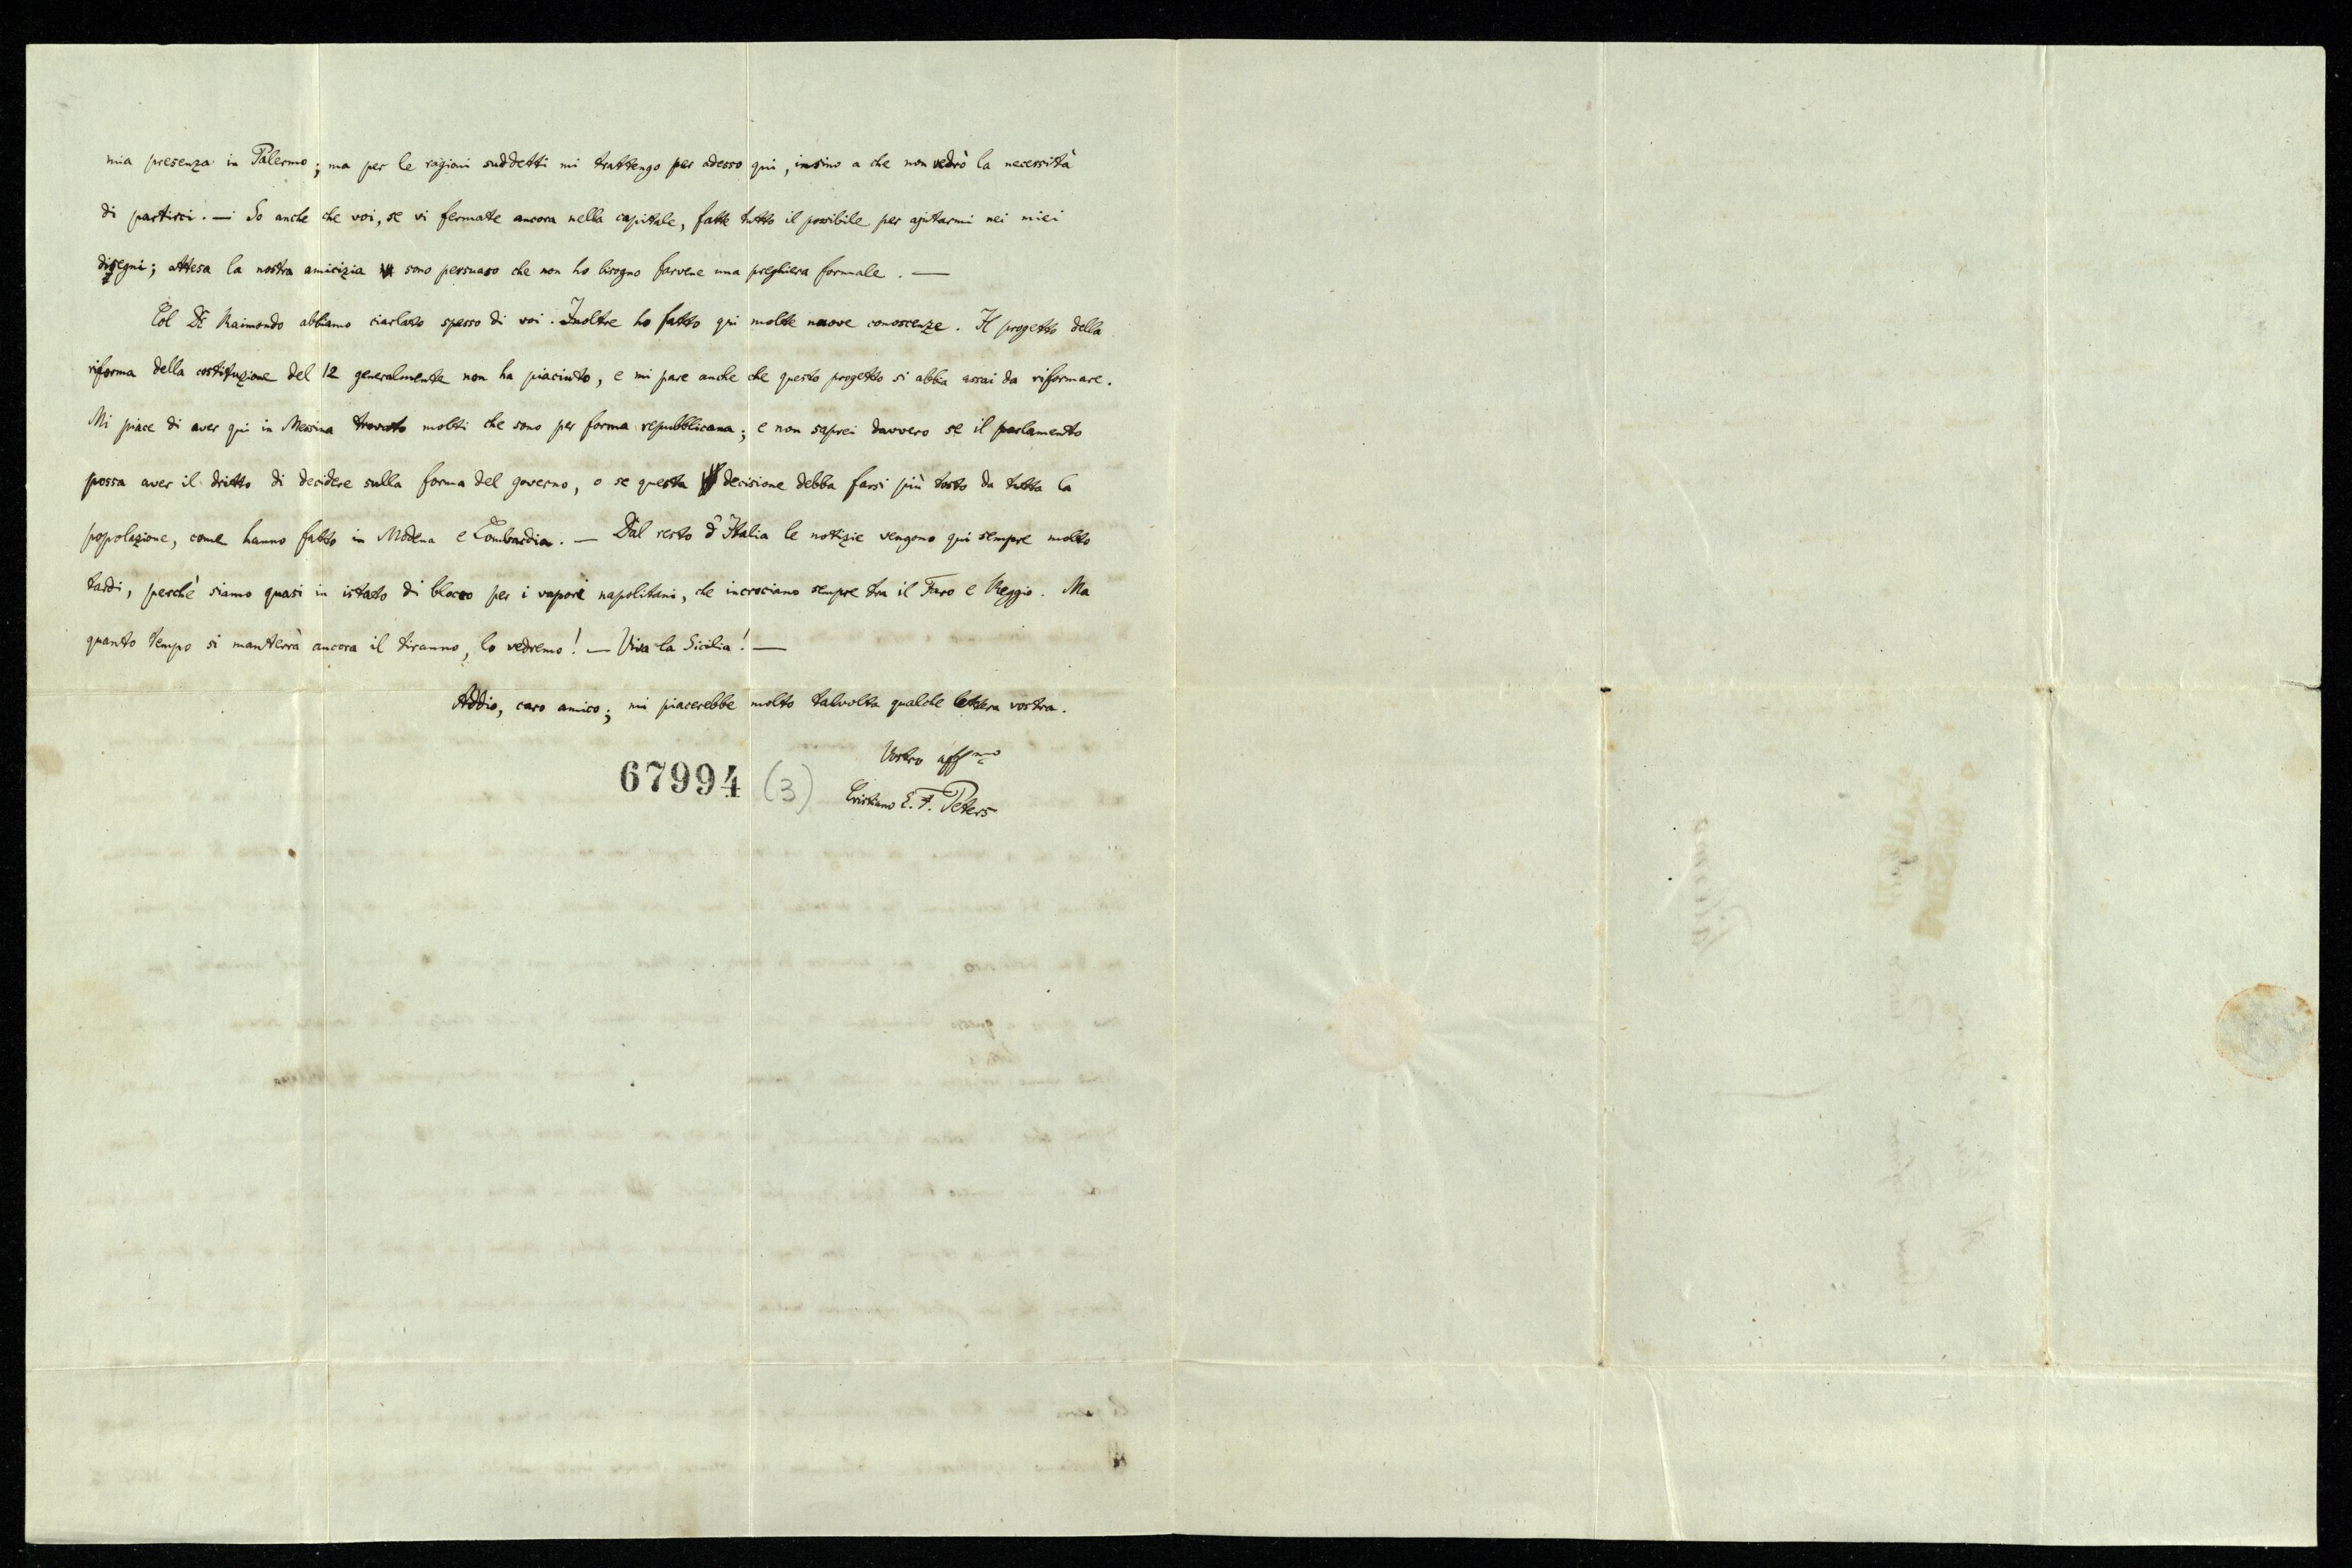 mia presenza in Palermo; ma per le ragioni suddetti mi trattengo per adesso qui, insino a che non vedrò la necessità
di partirci. — So anche che voi, se vi fermate ancora nella capitale, fatte tutto il possibile per ajutarmi nei miei
disegni; attesa la nostra amicizia sono persuaso che non ho bisogno farvene una preghiera formale. —
Col Dr Raimondo abbiamo ciarlato spesso di voi. Inoltre ho fatto qui molte nuove conoscenze. Il progetto della
riforma della costituzione del 12 generalmente non ha piaciuto, e mi pare anche che questo progetto si abbia assai da riformare.
Mi piace di aver qui in Messina trovato molti che sono per forma repubblicana; e non saprei davvero se il parlamento
possa aver il dritto di decidere sulla forma del governo, o se questa decisione debba farsi più tosto da tutta la
popolazione, come hanno fatto in Modena e Lombardia. — Dal resto d'Italia le notizie vengono qui sempre molto
tardi, perchè siamo quasi in istato di blocco per i vapori napolitani, che incrociano sempre tra il Faro e Reggio. Ma
quanto tempo si manterrà ancora il tiranno, lo vedremo! — Viva la Sicilia! —
Addio, caro amico; mi piacerebbe molto talvolta qualche lettera vostra.
Vostro affmo
67994 (3)
Cristiano E. F. Peters